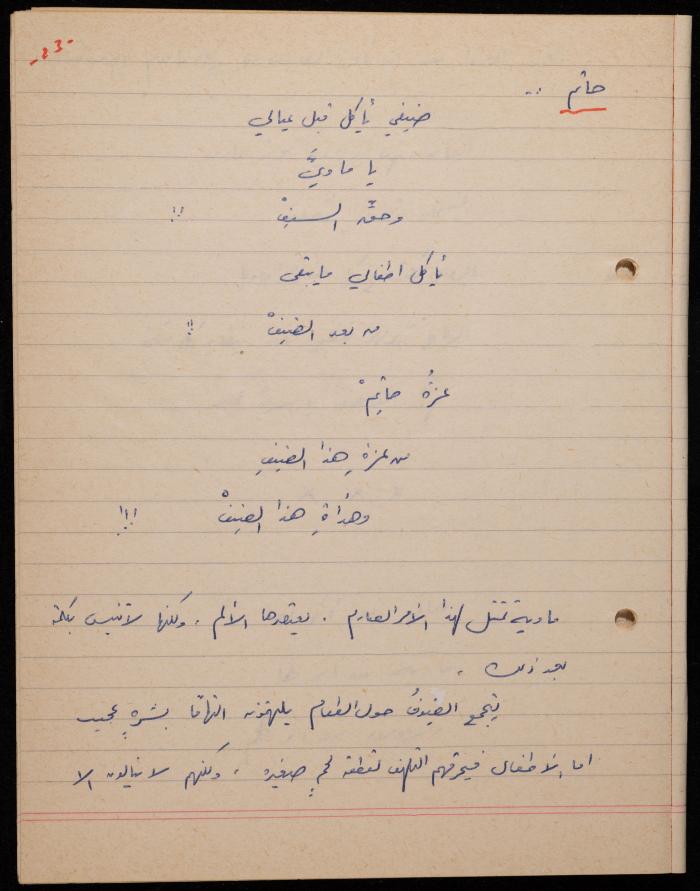 -23-
حاتم ..
ضيفي يأكل قبل عيالي
يا ماويَّ
وحقِّ السيفْ !!
يأكل اطفالي ما يبقى
من بعد الضيفْ !!
عزةُ حاتِمْ
من عزةِ هذا الضيفِ
وهدأةِ هذا الضيفْ !!!
ماوية تمتثل لهذا الأمر الصارم . يعتصرها الألم . ولكنها لا تنبس بكلمة
بعد ذلك .
يتجمع الضيوفُ حول الطعام يلتهمونه التهاماً بشرهٍ عجيب
اما الأطفال فيحرقهم التلهف لقطعة لحمٍ صغيرة . ولكنهم لا ينالون الا